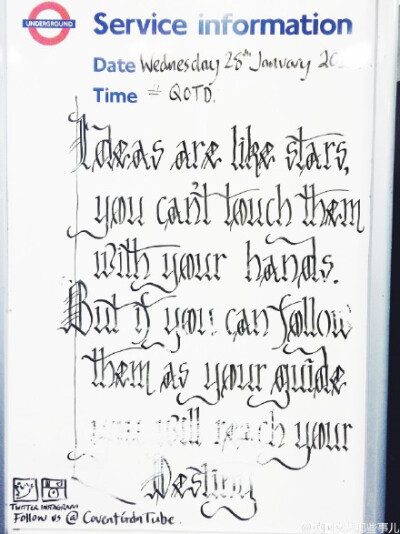 UNDERGROUND
Service information
Date Wednesday 28th January
Time # QOTD.
Ideas are like stars,
you can't touch them
with your hands.
But if you can follow
them as your guide
you will reach your
Destiny
TWITTER INSTAGRAM
Follow us @ CoventGdnTube.